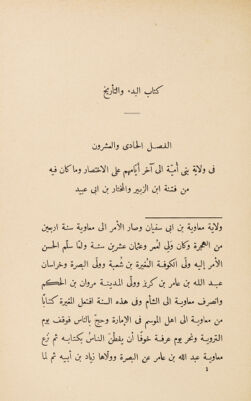 كتاب البدء والتأريخ
الفصل الحادى والعشرون
فى ولاية بنى أميّة الى آخر أيّامهم على الاختصار وما كان فيه
من فتنة ابن الزبير والمختار بن ابى عبيد
ولاية معاوية بن ابى سفيان وصار الأمر الى معاوية سنة اربعين
من الهجرة وكان ولى لعُمر وعثمان عشرين سنة ولمّا سلّم الحسن
الأمر إليه ولّى الكوفة المُغيرة بن شُعبة وولّى البصرة وخراسان
عبد الله بن عامر بن كريز وولّى المدينة مروان بن الحكم
وانصرف معاوية الى الشأم وفى هذه السنة افتعل المغيرة كتابًا
من معاوية الى اهل الموسم فى الإمارة وحجّ بالناس فوقف يوم
التروية ونحر يوم عرفة خوفًا أن يفطن الناسُ بكتابه ثم نزع
معاوية عبد الله بن عامر عن البصرة وولّاها زياد بن أبيه ثم لما